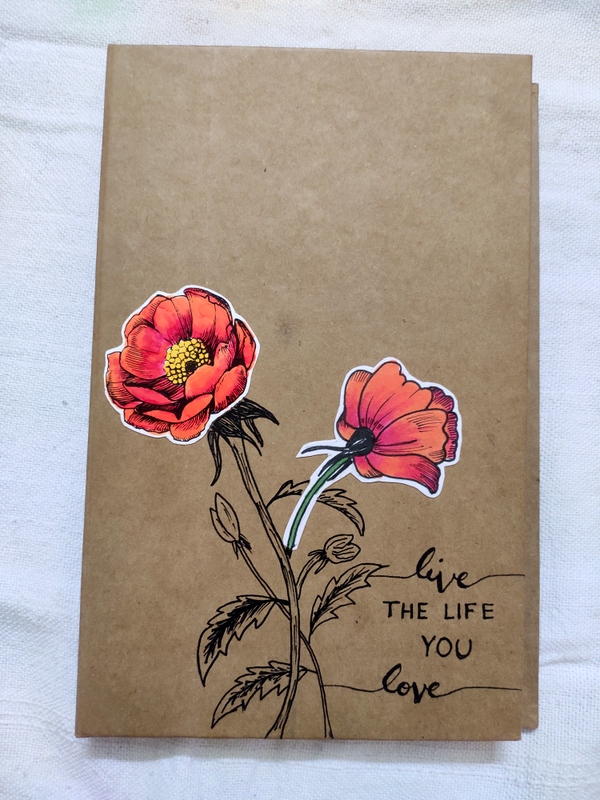 live
THE LIFE
YOU
love